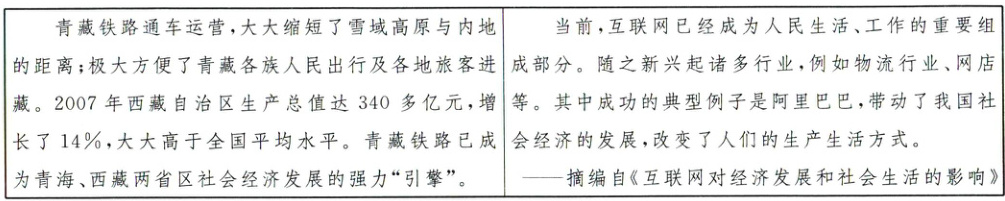 青藏铁路通车运营,大大缩短了雪域高原与内地
的距离;极大方便了青藏各族人民出行及各地旅客进
藏。2007 年西藏自治区生产总值达 340 多亿元,增
长了 14%,大大高于全国平均水平。青藏铁路已成
为青海、西藏两省区社会经济发展的强力“引擎”。
当前,互联网已经成为人民生活、工作的重要组
成部分。随之新兴起诸多行业,例如物流行业、网店
等。其中成功的典型例子是阿里巴巴,带动了我国社
会经济的发展,改变了人们的生产生活方式。
——摘编自《互联网对经济发展和社会生活的影响》